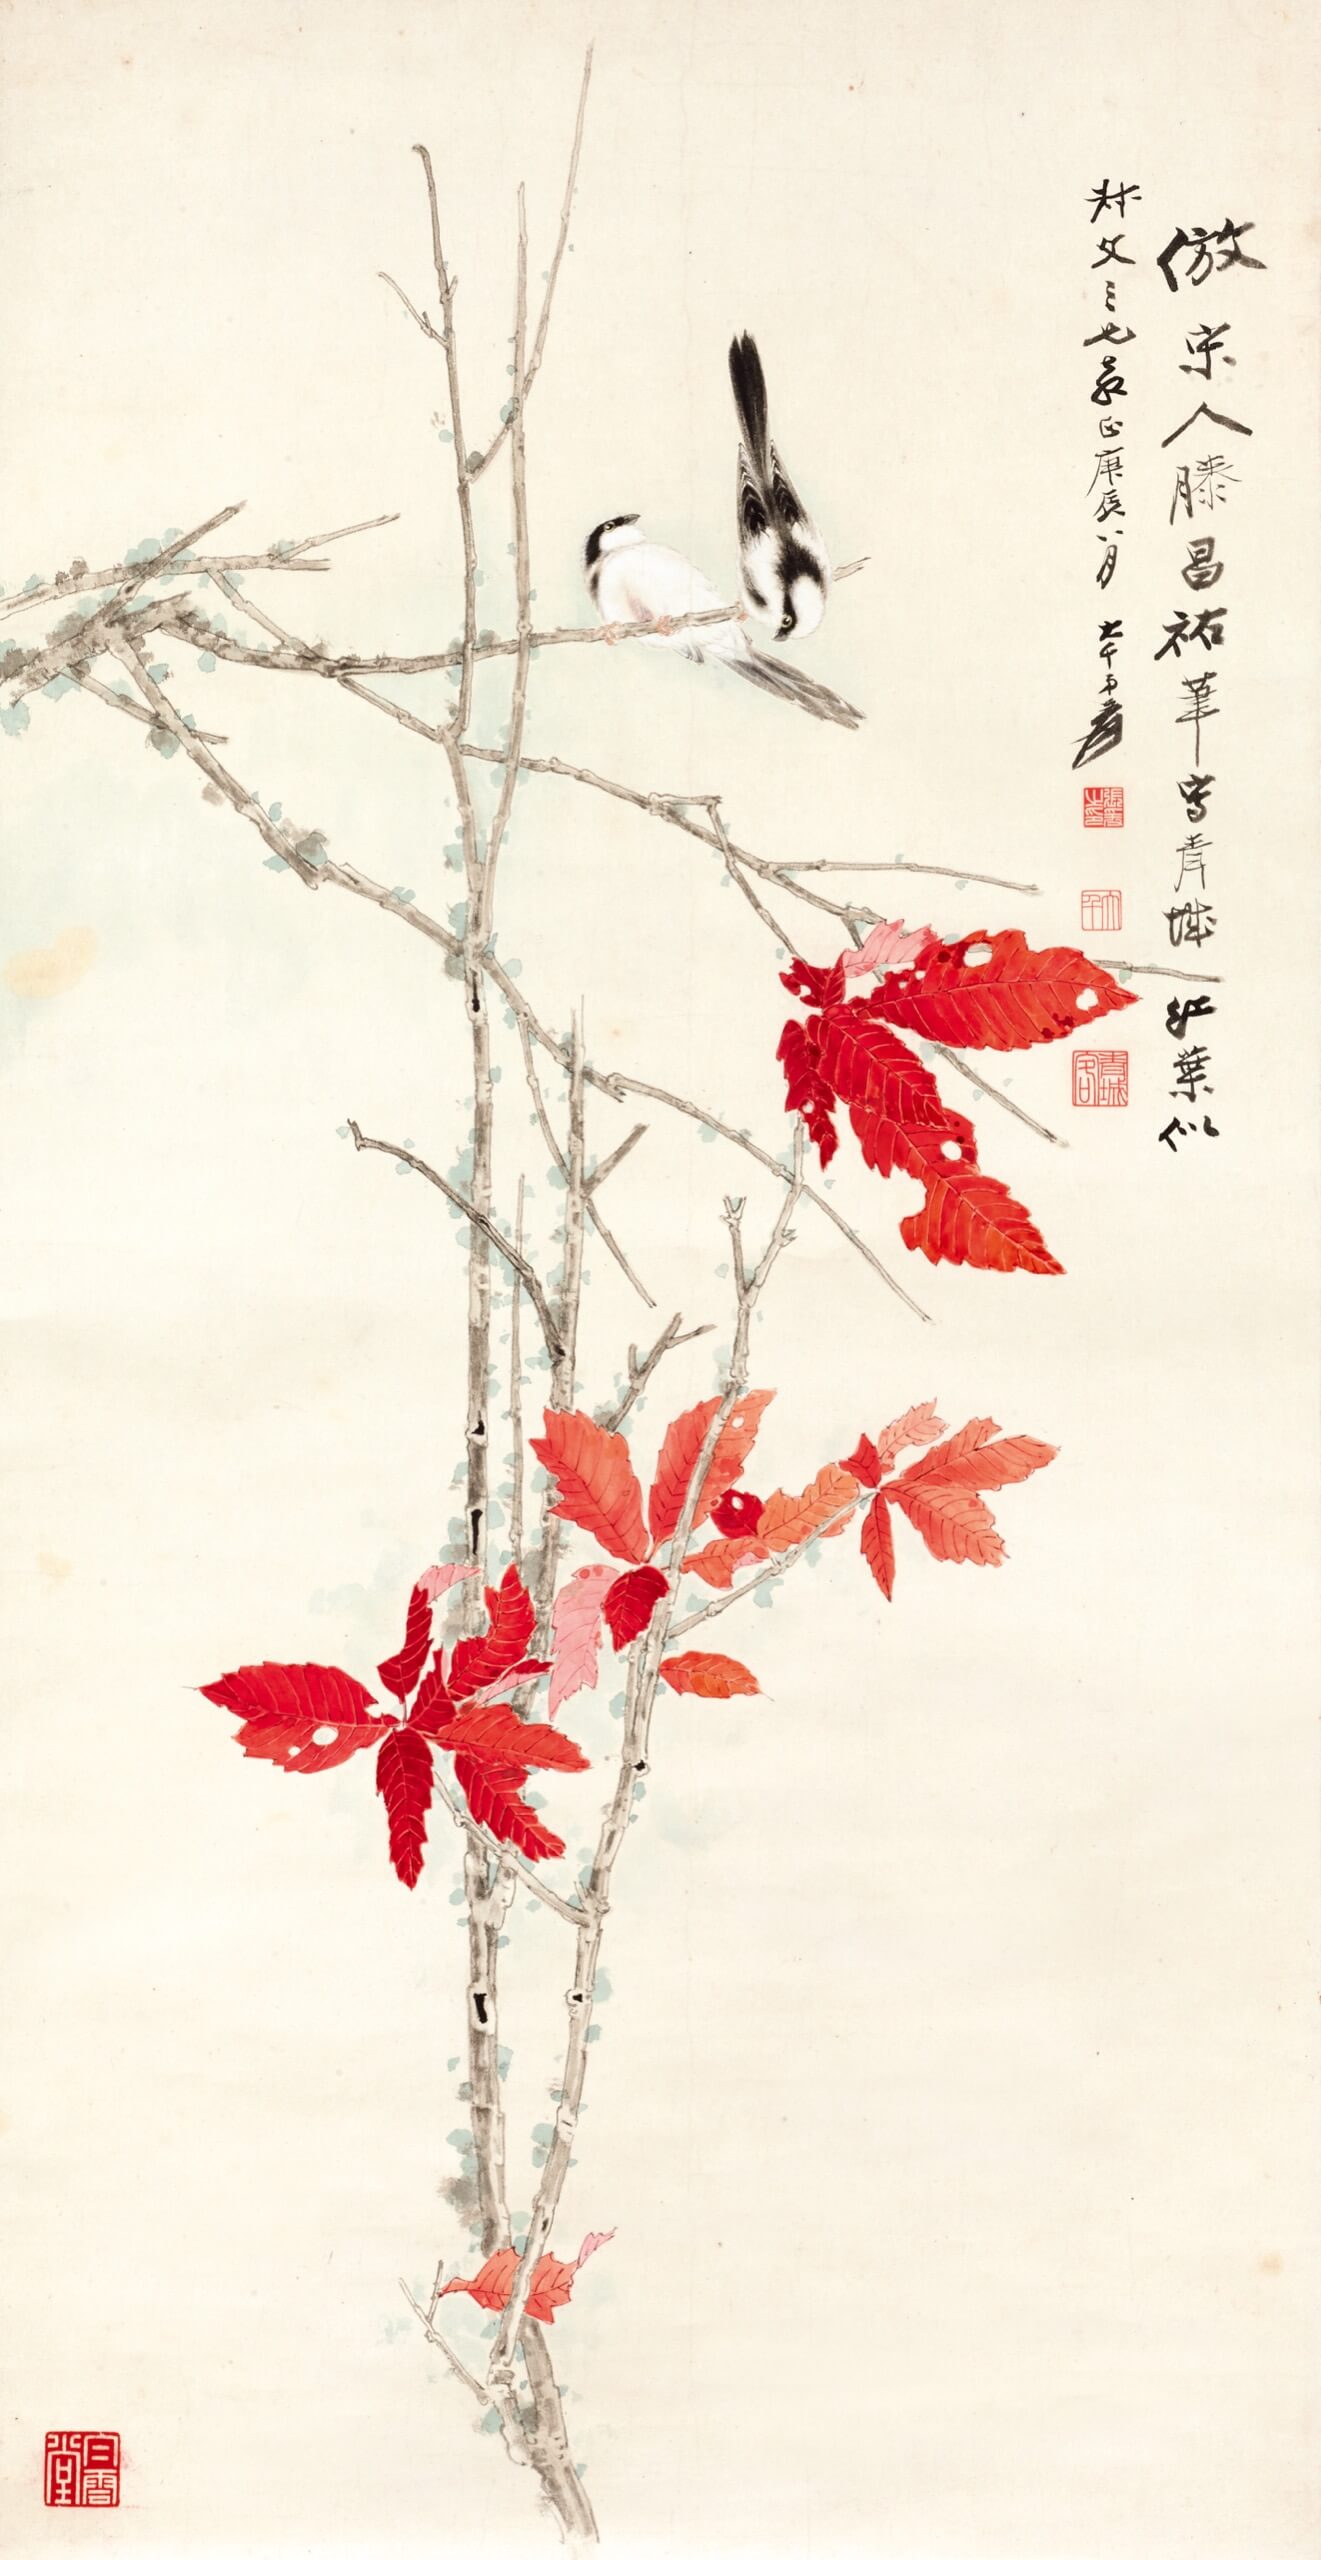 倣宋人滕昌祐筆寫青城紅葉似
文三兄教正庚辰八月 大千弟爰
張爰之印
大千
青城客
白雲堂